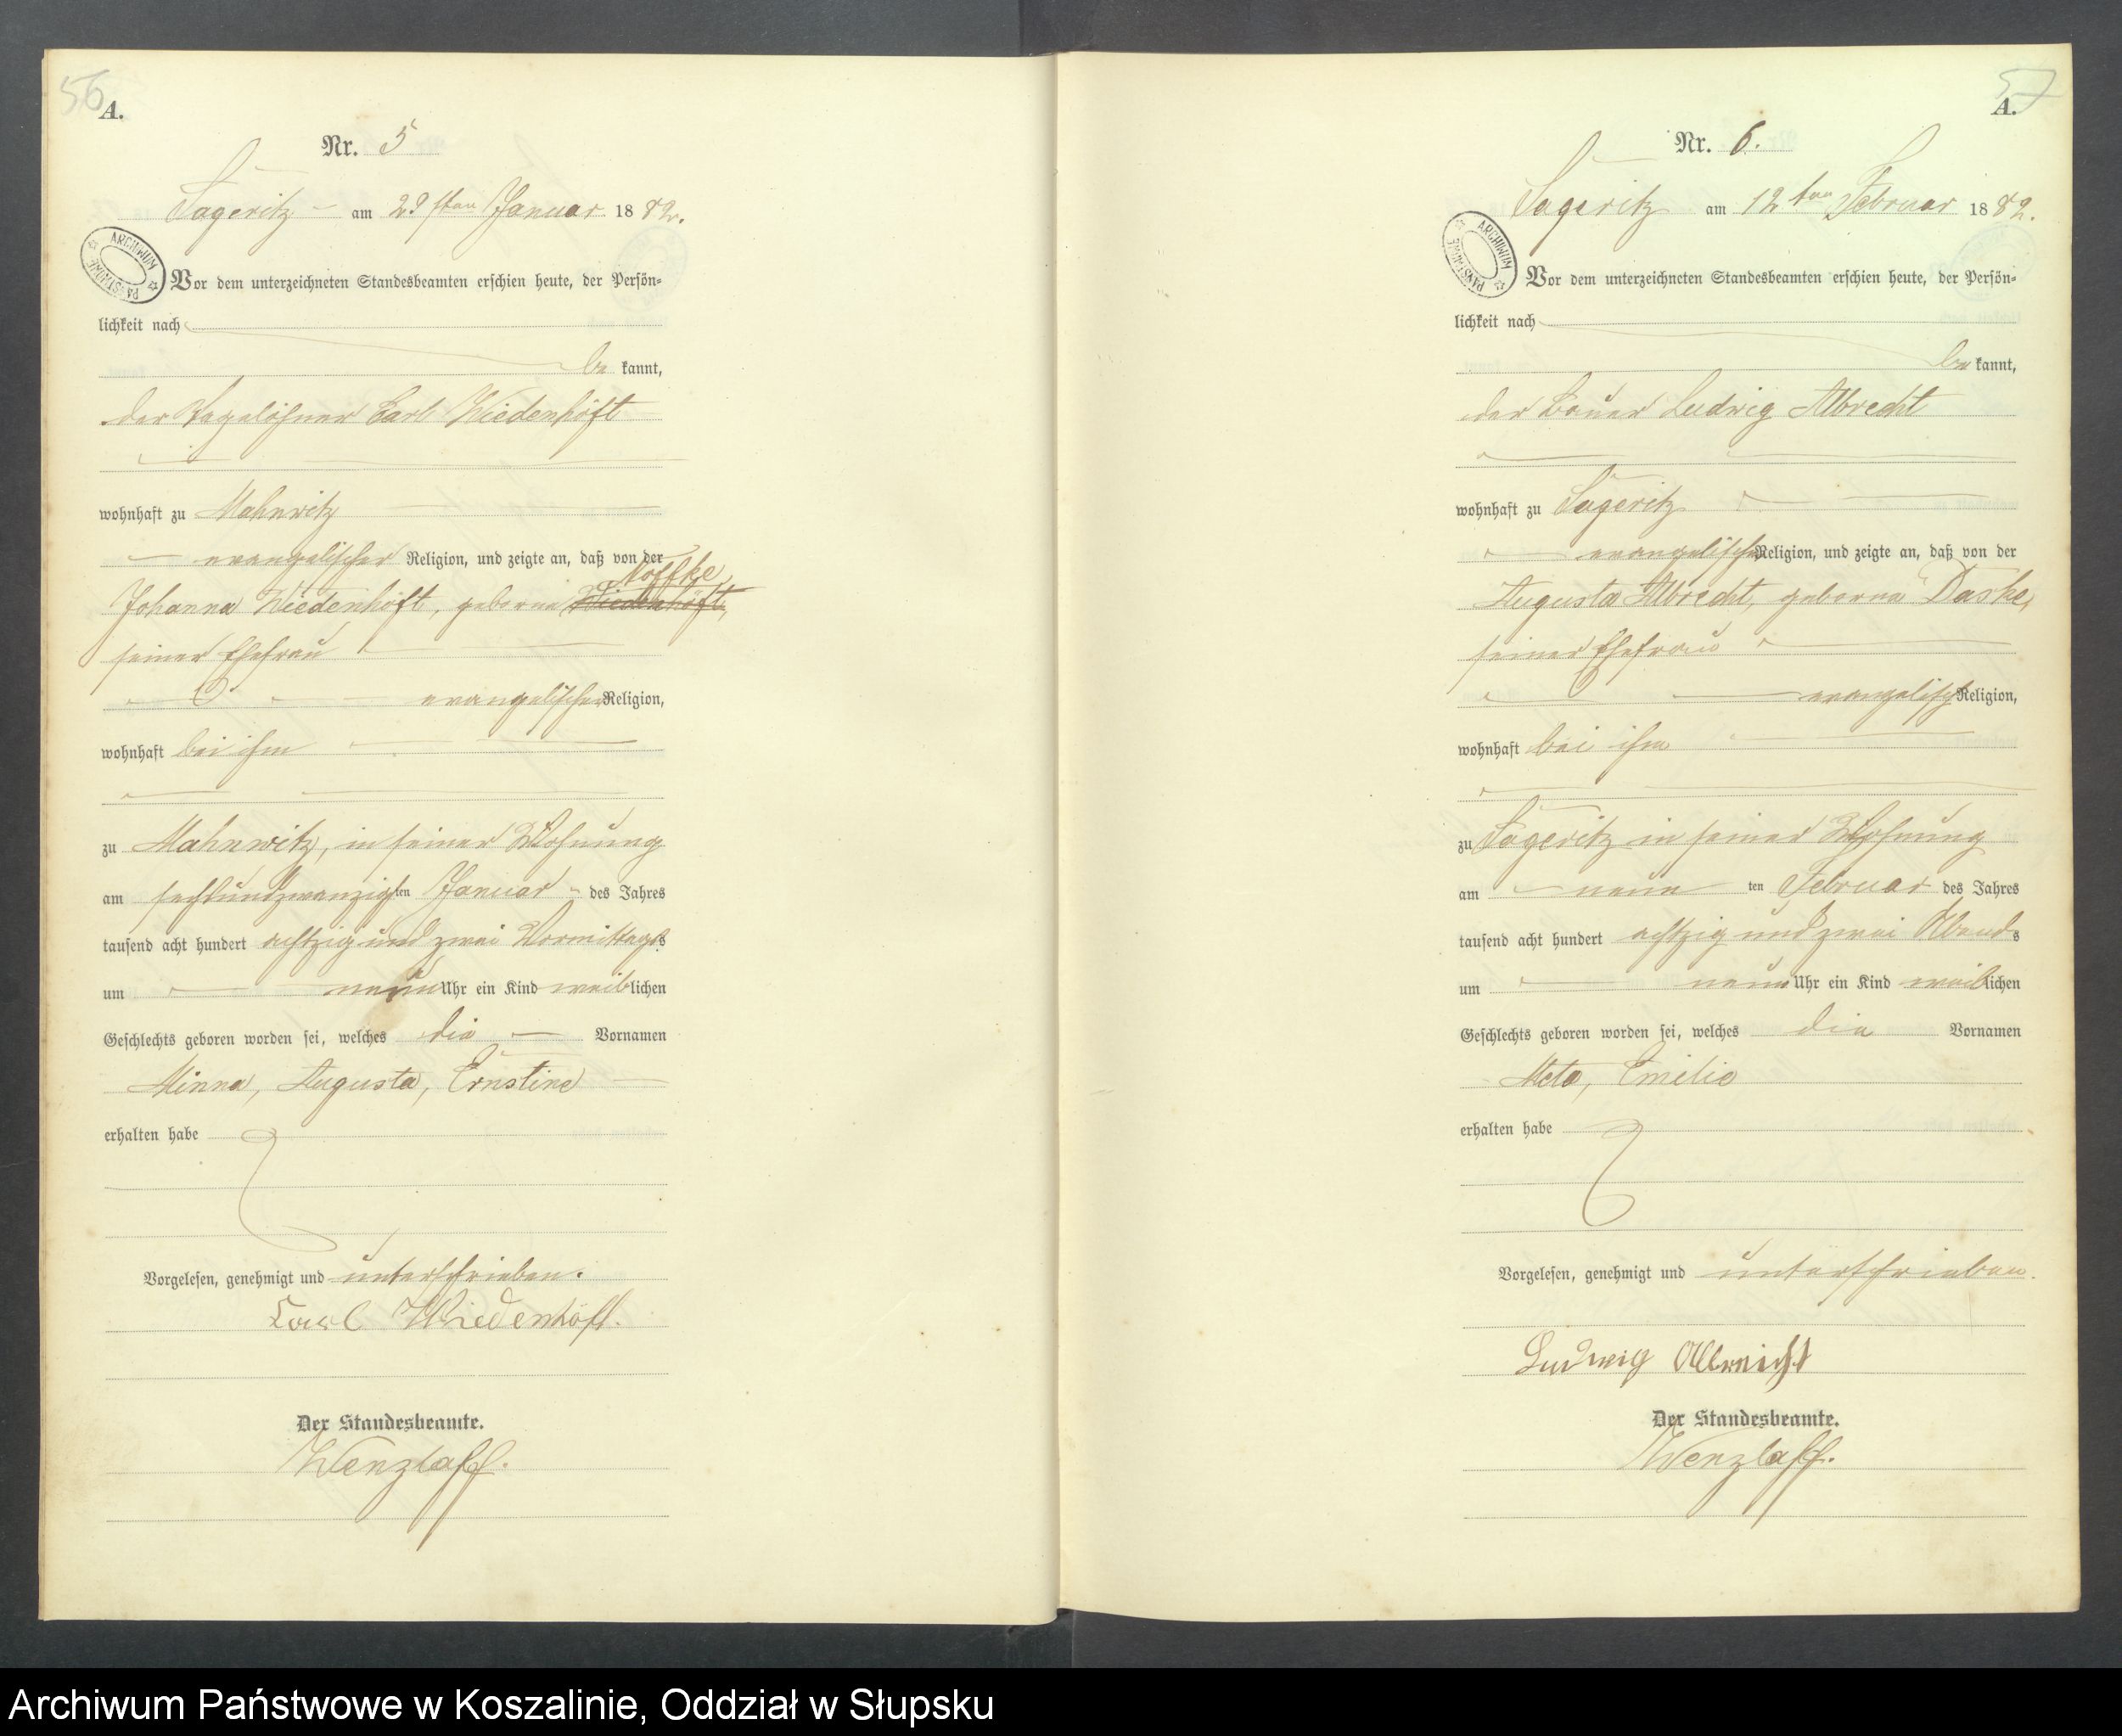 56
A.
Nr. 5
Sageritz am 29sten Januar 1882.
ARCHIWUM PAŃSTWOWE
Vor dem unterzeichneten Standesbeamten erschien heute, der Persön-
lichkeit nach
be kannt,
der Tagelöhner Carl Wiedenhöft
wohnhaft zu Mahnwitz
evangelischer Religion, und zeigte an, daß von der
Noffke,
Johanna Wiedenhöft, geborne Wiedenhöft,
seiner Ehefrau
evangelischer Religion,
wohnhaft bei ihm
zu Mahnwitz, in seiner Wohnung
am sechsundzwanzigsten Januar des Jahres
tausend acht hundert achtzig und zwei Vormittags
um neun Uhr ein Kind weiblichen
Geschlechts geboren worden sei, welches die Vornamen
Minna, Augusta, Ernstine
erhalten habe
Vorgelesen, genehmigt und unterschrieben.
Carl Wiedenhöft.
Der Standesbeamte.
Wenzlaff.
57
A.
Nr. 6.
Sageritz am 12ten Februar 1882.
ARCHIWUM PAŃSTWOWE
Vor dem unterzeichneten Standesbeamten erschien heute, der Persön-
lichkeit nach
be kannt,
der Bauer Ludwig Albrecht
wohnhaft zu Sageritz
evangelischer Religion, und zeigte an, daß von der
Augusta Albrecht, geborne Daske,
seiner Ehefrau
evangelisch Religion,
wohnhaft bei ihm
zu Sageritz in seiner Wohnung
am neun ten Februar des Jahres
tausend acht hundert achtzig und zwei Abends
um neun Uhr ein Kind weiblichen
Geschlechts geboren worden sei, welches die Vornamen
Meta, Emilie
erhalten habe
Vorgelesen, genehmigt und unterschrieben.
Ludwig Albreicht
Der Standesbeamte.
Wenzlaff.
Archiwum Państwowe w Koszalinie, Oddział w Słupsku